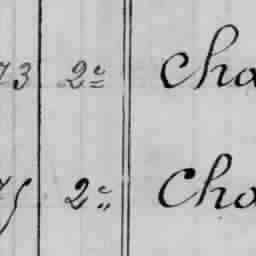 73 2e Cha
75 2e Cha